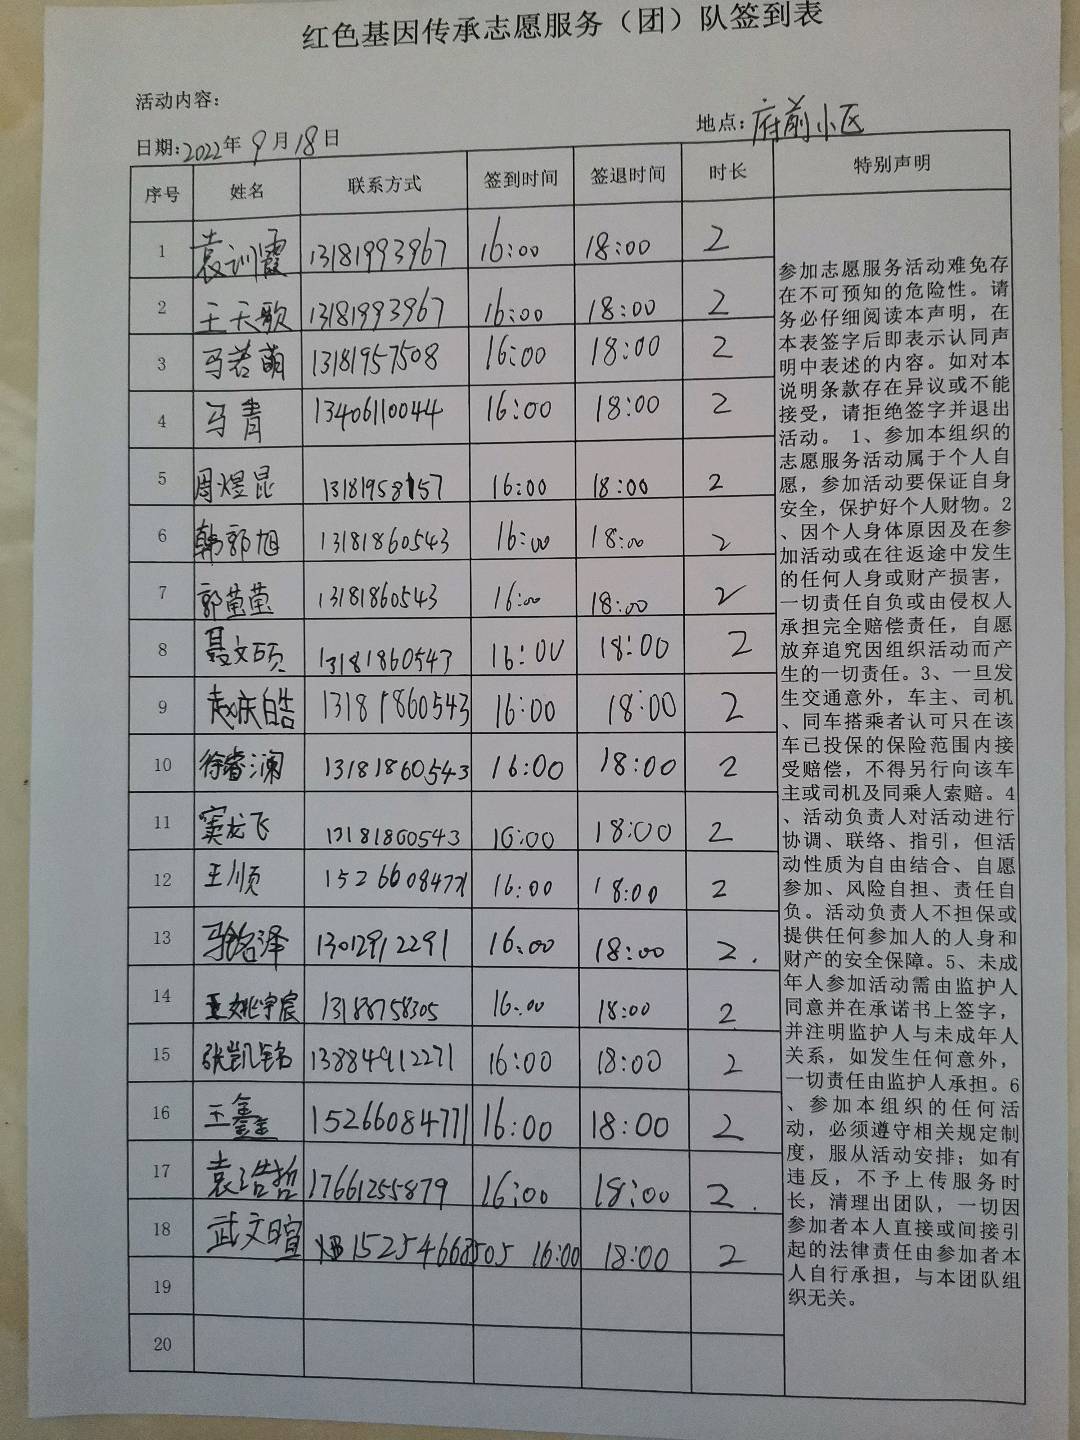 红色基因传承志愿服务（团）队签到表
活动内容：
日期：2022年9月18日
地点：府前小区
序号 姓名 联系方式 签到时间 签退时间 时长 特别声明
1 袁训霞 13181993967 16:00 18:00 2
2 王天歌 13181993967 16:00 18:00 2
3 马若萌 13181957508 16:00 18:00 2
4 马青 13406110044 16:00 18:00 2
5 周煜昆 13181958157 16:00 18:00 2
6 韩郭旭 13181860543 16:00 18:00 2
7 郭萤莹 13181860543 16:00 18:00 2
8 聂文硕 13181860543 16:00 18:00 2
9 赵庆皓 13181860543 16:00 18:00 2
10 徐睿澜 13181860543 16:00 18:00 2
11 窦龙飞 13181860543 16:00 18:00 2
12 王顺 15266084771 16:00 18:00 2
13 泽 13012912291 16:00 18:00 2.
14 姚宇宸 13188758305 16:00 18:00 2
15 张凯铭 13884912271 16:00 18:00 2
16 王鑫 15266084771 16:00 18:00 2
17 袁浩哲 17661255879 16:00 18:00 2.
18 武文暄 16:00 18:00 2
19
20
参加志愿服务活动难免存
在不可预知的危险性。请
务必仔细阅读本声明，在
本表签字后即表示认同声
明中表述的内容。如对本
说明条款存在异议或不能
接受，请拒绝签字并退出
活动。 1、参加本组织的
志愿服务活动属于个人自
愿，参加活动要保证自身
安全，保护好个人财物。2
、因个人身体原因及在参
加活动或在往返途中发生
的任何人身或财产损害，
一切责任自负或由侵权人
承担完全赔偿责任，自愿
放弃追究因组织活动而产
生的一切责任。3、一旦发
生交通意外，车主、司机
、同车搭乘者认可只在该
车已投保的保险范围内接
受赔偿，不得另行向该车
主或司机及同乘人索赔。4
、活动负责人对活动进行
协调、联络、指引，但活
动性质为自由结合、自愿
参加、风险自担、责任自
负。活动负责人不担保或
提供任何参加人的人身和
财产的安全保障。5、未成
年人参加活动需由监护人
同意并在承诺书上签字，
并注明监护人与未成年人
关系，如发生任何意外，
一切责任由监护人承担。6
、参加本组织的任何活
动，必须遵守相关规定制
度，服从活动安排；如有
违反，不予上传服务时
长，清理出团队，一切因
参加者本人直接或间接引
起的法律责任由参加者本
人自行承担，与本团队组
织无关。